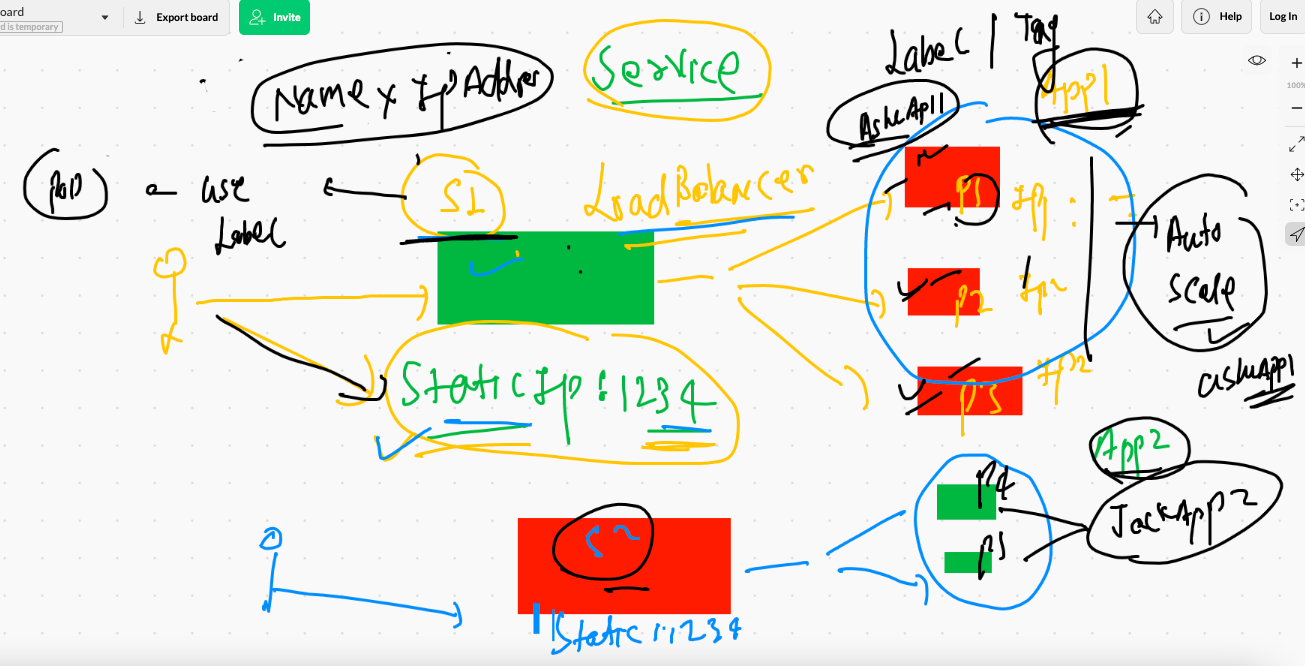 oard
d is temporary
Export board
Invite
Help
Log In
100%
Label | Tag
Name x Ip Addres
Service
App1
AshuApp11
POD
use
Label
S1
LoadBalancer
P1 Ip1 :
Auto
Scale
P2 Ip2
ashuApp1
P3
StaticIp : 1234
App2
P4
JackApp2
S2
Static 1.1234